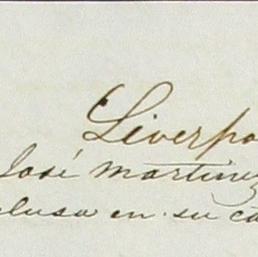 Liverpo
José Martinez
clusa en su ca